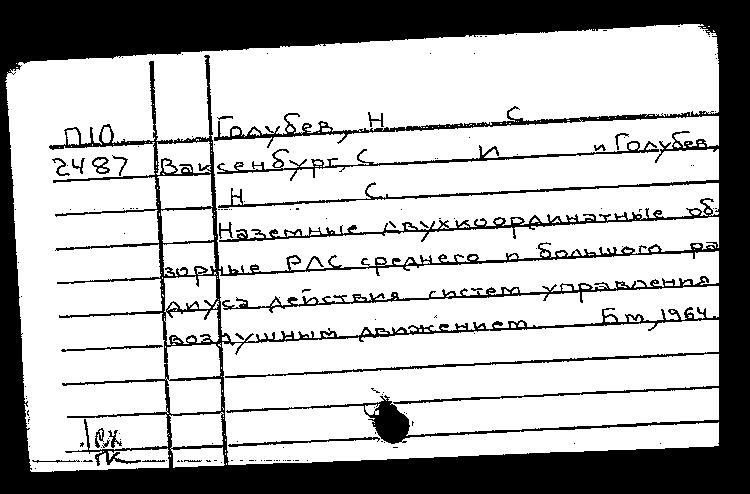 П10 Голубев, Н С
2487 Ваксенбург, С И и Голубев,
Н С.
Наземные двухкоординатные об-
зорные РЛС среднего и большого ра
диуса действия систем управления
воздушным движением. Бм, 1964.
ГК